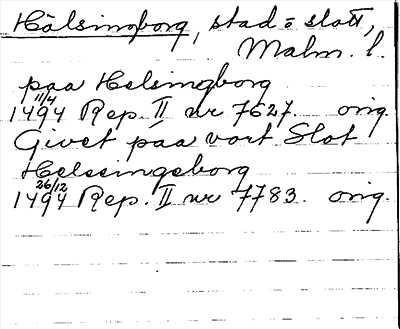 Hälsingborg, stad o slott,
Malm. l.
paa Helsingborg
1494 11/4 Rep. II nr 7627. orig.
Givet paa vort Slot
Helssingeborg
1494 26/12 Rep. II nr 7783. orig.